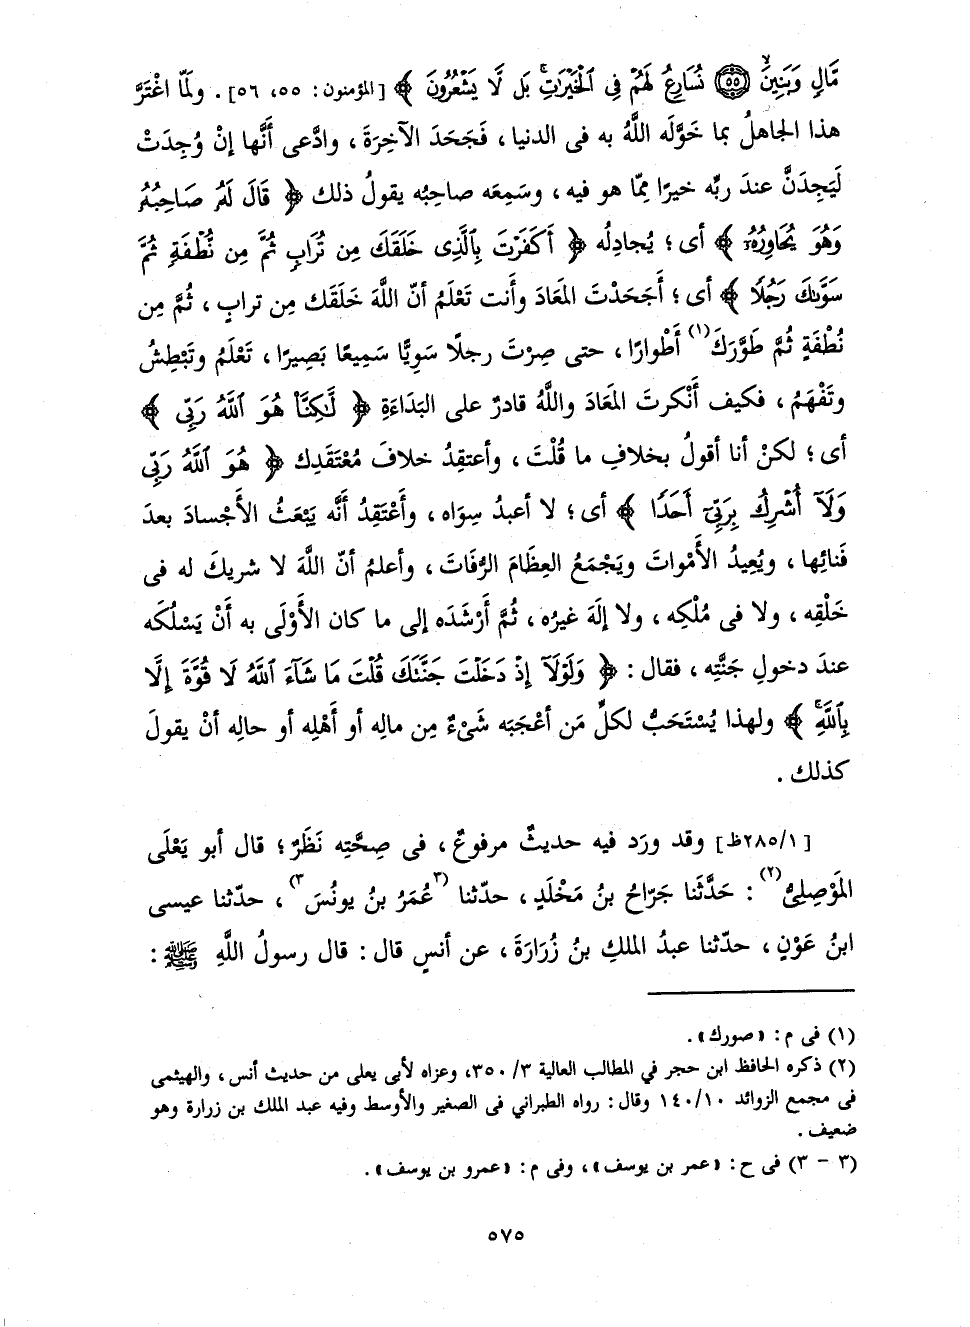 مَّالٍ وَبَنِينَ ﴿٥٥﴾ نُسَارِعُ لَهُمْ فِي ٱلْخَيْرَٰتِۚ بَل لَّا يَشْعُرُونَ ﴾ [المؤمنون: ٥٥، ٥٦] . ولَمّا اغْتَرَّ
هذا الجاهلُ بما خَوَّلَه اللَّهُ به فى الدنيا ، فَجَحَدَ الآخِرَةَ ، وادَّعى أَنَّها إنْ وُجِدَتْ
لَيَجِدَنَّ عندَ ربِّه خيرًا مِمّا هو فيه ، وسَمِعَه صاحِبُه يقولُ ذلك ﴿ قَالَ لَهُۥ صَاحِبُهُۥ
وَهُوَ يُحَاوِرُهُۥٓ ﴾ أى ؛ يُجادِلُه ﴿ أَكَفَرْتَ بِٱلَّذِى خَلَقَكَ مِن تُرَابٍ ثُمَّ مِن نُّطْفَةٍ ثُمَّ
سَوَّىٰكَ رَجُلًا ﴾ أى ؛ أَجَحَدْتَ المَعَادَ وأنت تَعْلَمُ أنّ اللَّهَ خَلَقَك مِن ترابٍ ، ثُمَّ مِن
نُطْفَةٍ ثُمَّ طَوَّرَكَ(١) أَطْوارًا ، حتى صِرْتَ رجلًا سَوِيًّا سَمِيعًا بَصِيرًا ، تَعْلَمُ وتَبْطِشُ
وتَفْهَمُ ، فكيف أَنْكرتَ المَعَادَ واللَّهُ قادرٌ على البَدَاءَةِ ﴿ لَّٰكِنَّا۠ هُوَ ٱللَّهُ رَبِّى ﴾
أى ؛ لكنْ أنا أقولُ بخلافِ ما قُلْتَ ، وأعتقِدُ خلافَ مُعْتَقَدِك ﴿ هُوَ ٱللَّهُ رَبِّى
وَلَآ أُشْرِكُ بِرَبِّىٓ أَحَدًا ﴾ أى ؛ لا أعبدُ سِوَاه ، وأَعْتَقِدُ أنَّه يَبْعَثُ الأَجْسادَ بعدَ
فَنائِها ، ويُعِيدُ الأَمْواتَ ويَجْمَعُ العِظَامَ الرُّفَاتَ ، وأعلمُ أنّ اللَّهَ لا شريكَ له فى
خَلْقِه ، ولا فى مُلْكِه ، ولا إلَهَ غيرُه ، ثُمَّ أَرْشَدَه إلى ما كان الأَوْلَى به أَنْ يَسْلُكَه
عندَ دخولِ جَنَّتِه ، فقال : ﴿ وَلَوْلَآ إِذْ دَخَلْتَ جَنَّتَكَ قُلْتَ مَا شَآءَ ٱللَّهُ لَا قُوَّةَ إِلَّا
بِٱللَّهِۚ ﴾ ولهذا يُسْتَحَبُّ لكلِّ مَن أعْجَبَه شَىْءٌ مِن مالِه أو أَهْلِه أو حالِه أنْ يقولَ
كذلك .
[٢٨٥/١ظ] وقد ورَد فيه حديثٌ مرفوعٌ ، فى صِحَّتِه نَظَرٌ ؛ قال أبو يَعْلَى
المَوْصِلِىُّ(٢) : حَدَّثَنا جَرّاحُ بنُ مَخْلَدٍ ، حدّثنا (٣عُمَرُ بنُ يونُسَ٣) ، حدّثنا عيسى
ابنُ عَوْنٍ ، حدّثنا عبدُ الملكِ بنُ زُرَارَةَ ، عن أنسٍ قال : قال رسولُ اللَّهِ ﷺ :
(١) فى م : «صورك» .
(٢) ذكره الحافظ ابن حجر في المطالب العالية ٣/ ٣٥٠، وعزاه لأبى يعلى من حديث أنس ، والهيثمى
فى مجمع الزوائد ١٤٠/١٠ وقال : رواه الطبراني فى الصغير والأوسط وفيه عبد الملك بن زرارة وهو
ضعيف .
(٣ - ٣) فى ح : «عمر بن يوسف» ، وفى م : «عمرو بن يوسف» .
٥٧٥